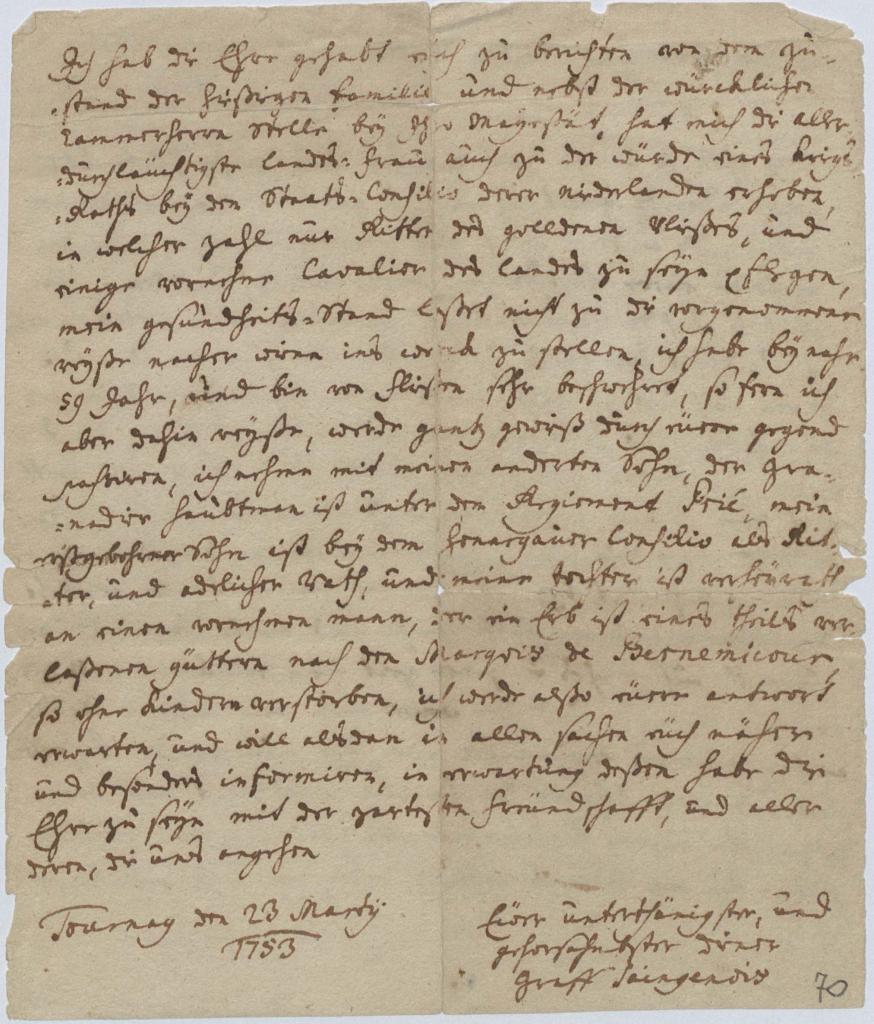 Ich hab die Ehre gehabt euch zu berichten von dem zu-
-stand der hießigen familie und nebst der würcklichen
Cammerherrn Stelle bey Ihro Mayestät, hat mich die aller-
-durchläuchtigste landes-frau auch zu der würde eines kriegs
-Raths bey dem Staats-Consilio derer niederlanden erhoben,
in welcher zahl nur Ritter des golldenen Vließes, und
einige vornehme Cavalier des landes zu seyn pflegen,
mein gesundheits-Stand laßet nicht zu die vorgenommene
reyße nacher wienn ins werck zu stellen, ich habe beynahe
59 Jahr, und bin von flüßen sehr beschwehret, so fern ich
aber dahin reyße, werde gantz gewiß durch euere gegend
passiren, ich nehme mit meinen anderten Sohn, der Gra-
-nadier haubtman ist unter dem Regiement, mein
erstgebohrner Sohn ist bey dem henegauer Consilio als Rit-
-ter, und adelicher rath, und meine tochter ist verheyrath
an einen vornehmen mann, der ein Erb ist eines theils ver-
laßenen güttern nach den Marquis de Bernemicour
so ohne kindern verstorben, ich werde alßo euere antwort
erwarten, und will alsdan in allen sachen euch näher
und besonders informiren, in erwartung deßen habe die
Ehre zu seyn mit der zartesten freündschafft, und aller
deren, die uns angehen
Tournay den 23 Martÿ
1753
Euer unterthänigster, und
gehorsahmbster diener
Graff
70